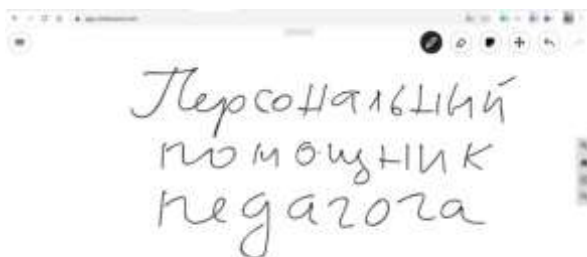 Персональный
помощник
педагога